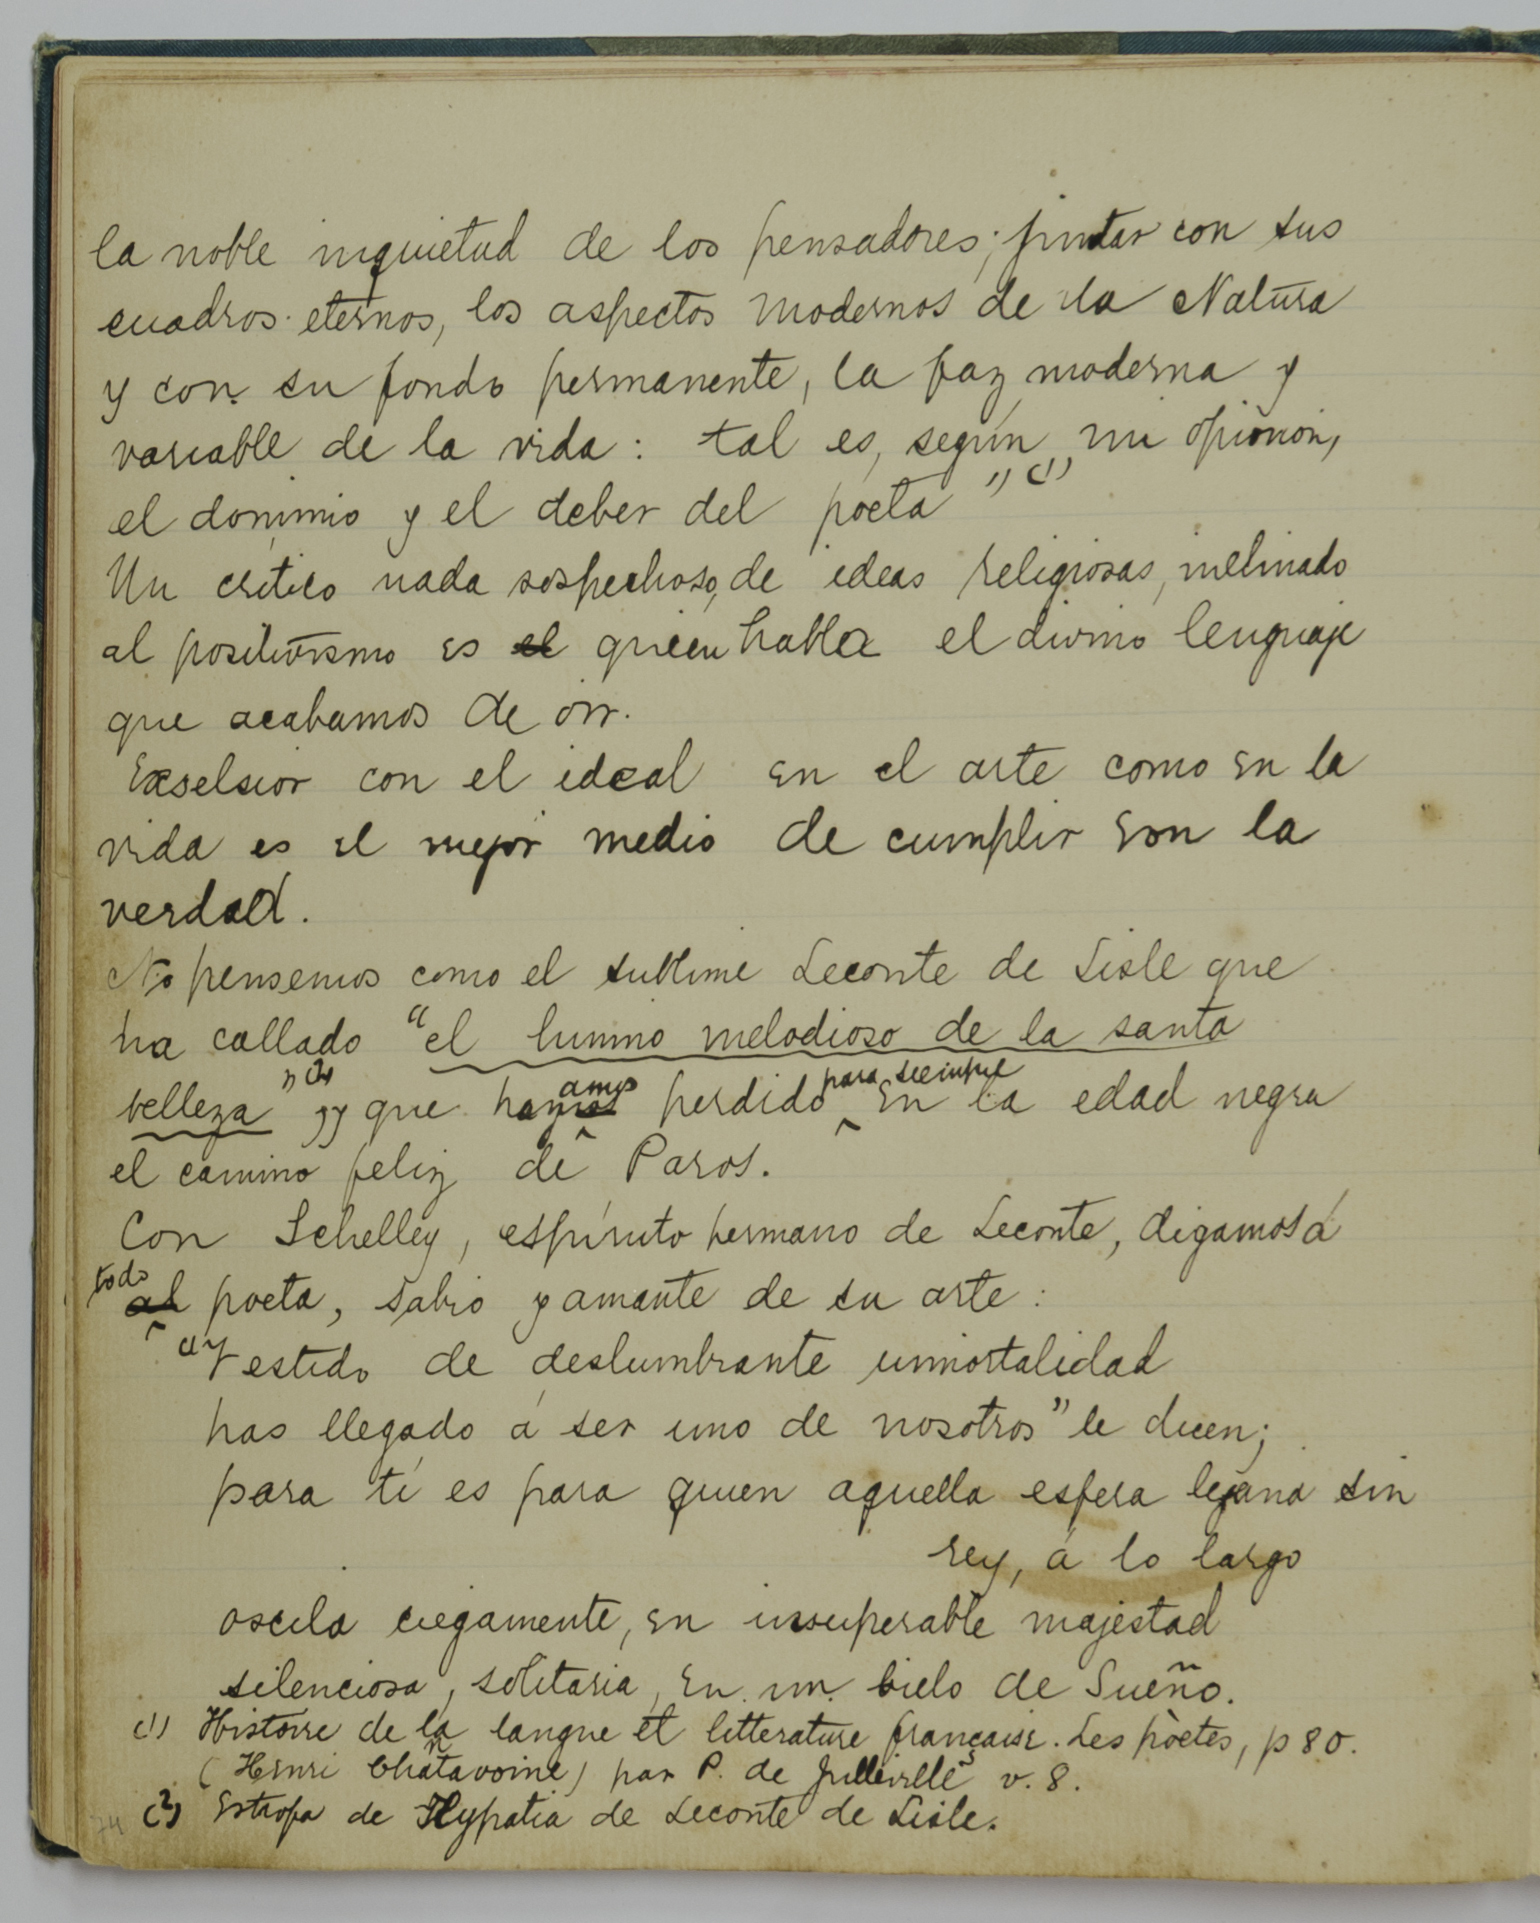 la noble inquietud de los pensadores; pintar con sus
cuadros eternos, los aspectos modernos de la Natura
y con su fondo permanente, la faz moderna y
variable de la vida: tal es, según mi opinión,
el dominio y el deber del poeta" (1)
Un crítico nada sospechoso, de ideas religiosas, inclinado
al positivismo es el quien habla el divino lenguaje
que acabamos de oir.
Exselsior con el ideal en el arte como en la
vida es el mejor medio de cumplir con la
verdad.
No pensemos como el sublime Leconte de Lisle que
ha callado "el himno melodioso de la santa
belleza" (2) y que hayamos perdido para siempre en la edad negra
el camino feliz de Paros.
Con Schelley, espíritu hermano de Leconte, digamos á
todo al poeta, sabio y amante de su arte:
"Vestido de deslumbrante inmortalidad
has llegado á ser uno de nosotros" le dicen;
para tí es para quien aquella esfera lejana sin
rey, á lo largo
oscila ciegamente, en insuperable majestad
silenciosa, solitaria, en un cielo de Sueño.
(1) Histoire de la langue et litterature française. Les pòetes, p 80.
(Henri Chantavoine) par P. de Julleville v. 8.
(2) Estrofa de Hypatia de Leconte de Lisle.
74